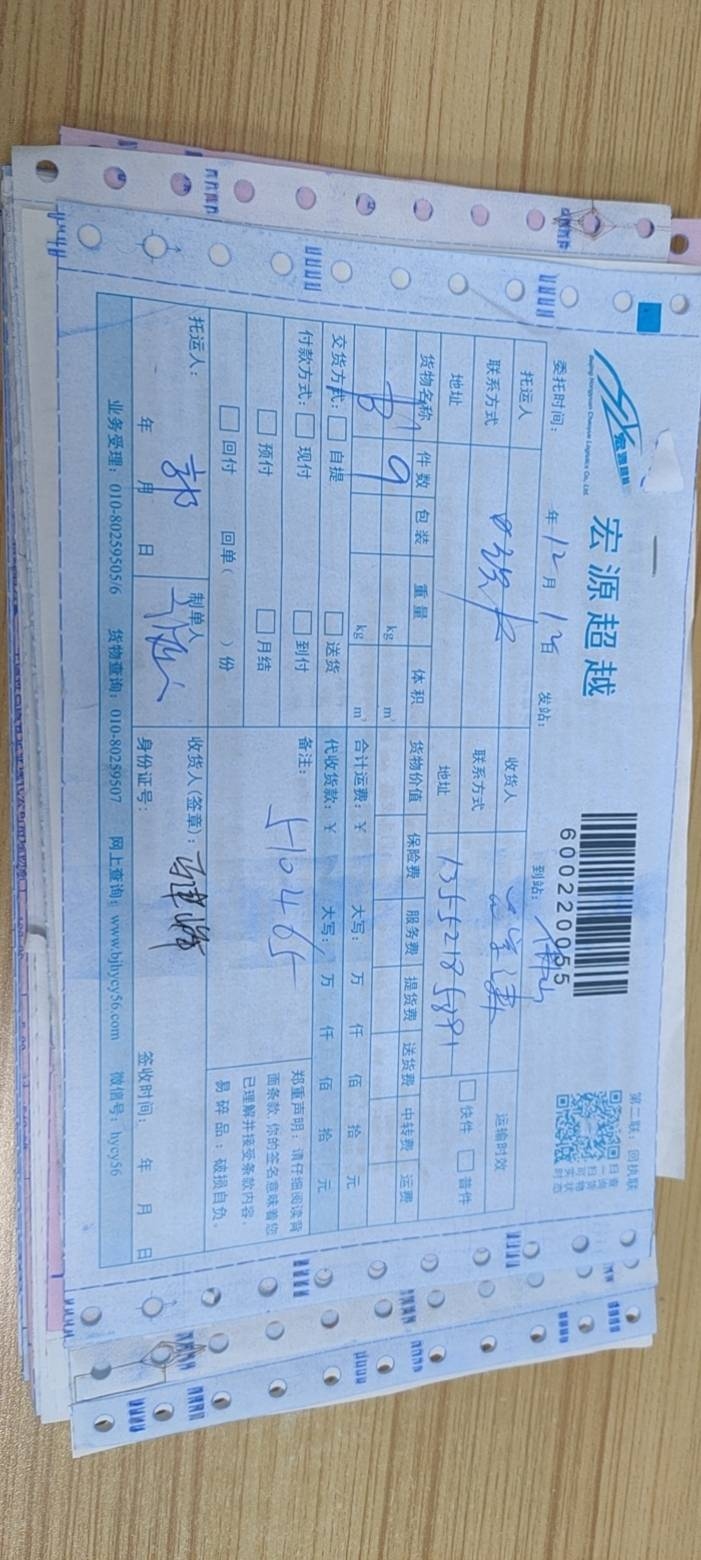 宏源超越
宏源超越
第二联：回执联
600220055
委托时间： 年 12 月 12 日 发站： 到站：
托运人 收货人 运输时效
联系方式 联系方式 快件 普件
地址 地址 13552185891
货物名称 件数 包装 重量 体积 货物价值 保险费 服务费 提货费 送货费 中转费 运费
9 kg m³
kg m³ 合计运费：￥ 大写： 万 仟 佰 拾 元
交货方式： 自提 送货 代收货款：￥ 大写： 万 仟 佰 拾 元
付款方式： 现付 到付 备注： 510465
预付 月结
回付 回单（ ）份
郑重声明：请仔细阅读背
面条款，你的签名意味着您
已理解并接受条款内容。
易碎品：破损自负。
托运人： 郭 制单人 收货人(签章)：
年 月 日 身份证号： 签收时间： 年 月 日
业务受理：010-80259505/6 货物查询：010-80259507 网上查询：www.bjhycy56.com 微信号：hycy56